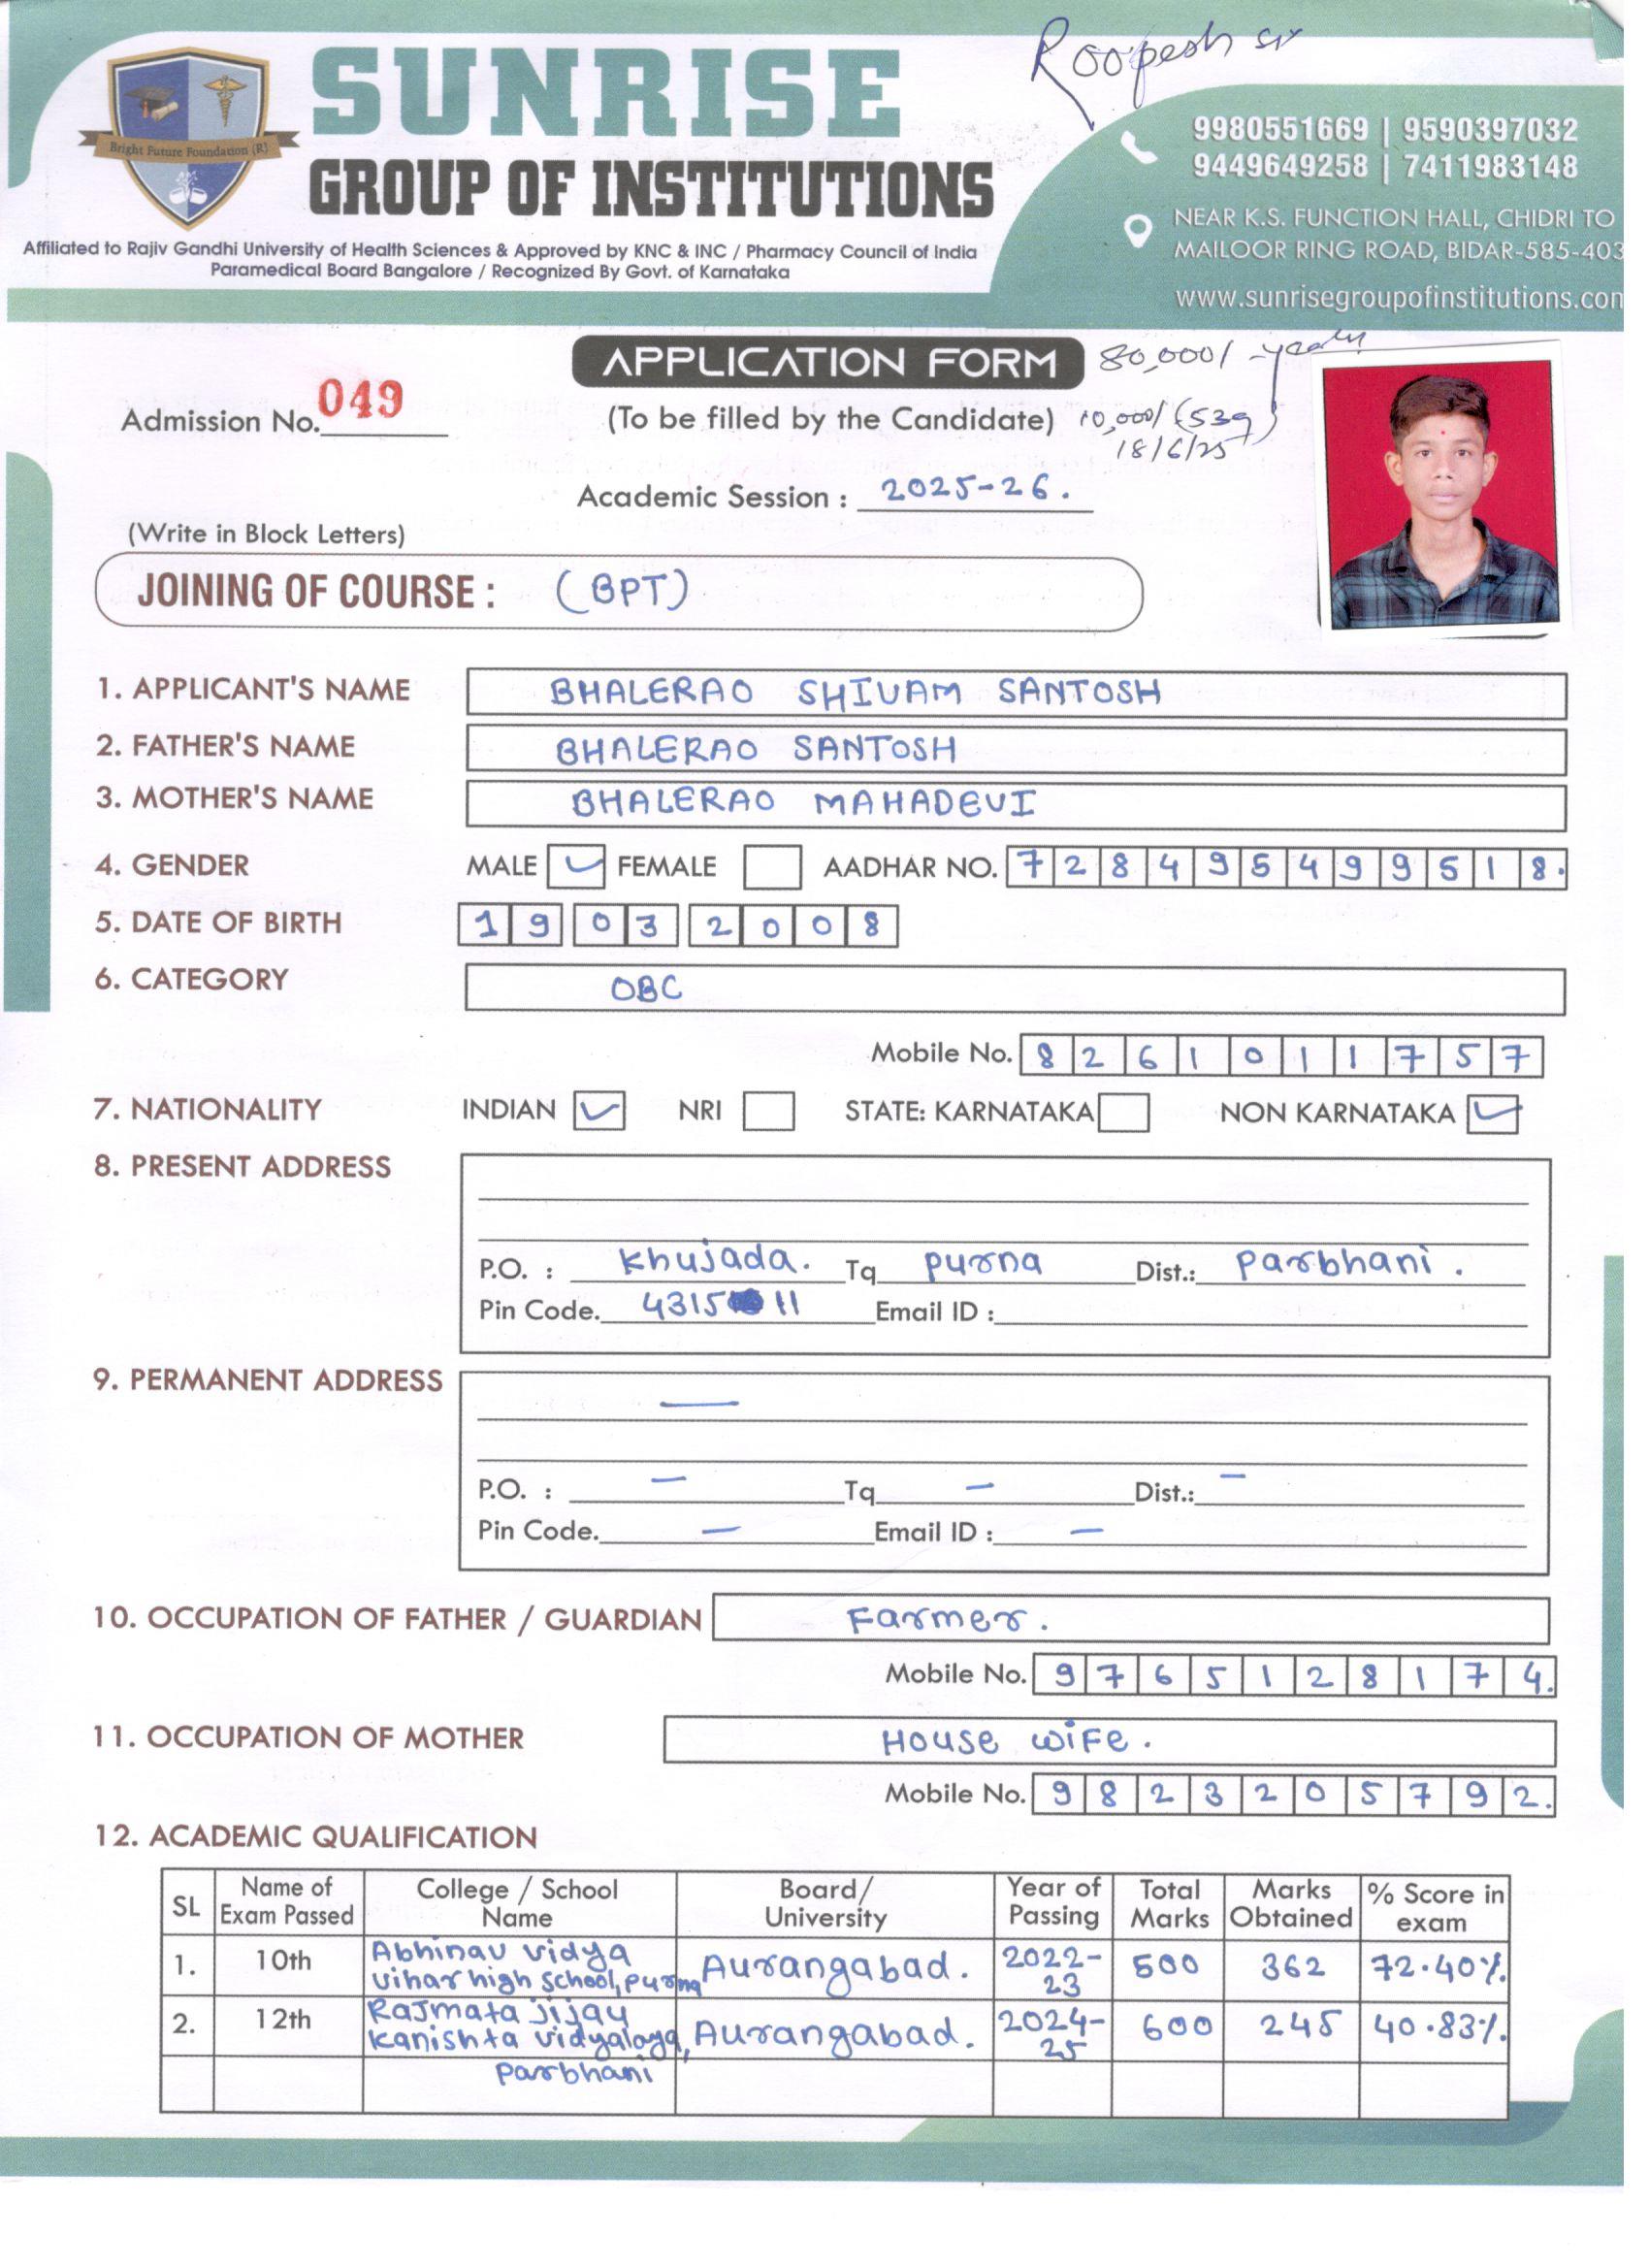 Roopesh sir
SUNRISE
GROUP OF INSTITUTIONS
Bright Future Foundation (R)
Affiliated to Rajiv Gandhi University of Health Sciences & Approved by KNC & INC / Pharmacy Council of India
Paramedical Board Bangalore / Recognized By Govt. of Karnataka
9980551669 | 9590397032
9449649258 | 7411983148
NEAR K.S. FUNCTION HALL, CHIDRI TO
MAILOOR RING ROAD, BIDAR-585-403
www.sunrisegroupofinstitutions.com
APPLICATION FORM 80,000/- yearly
Admission No. 049 (To be filled by the Candidate) 10,000/ (539)
18/6/25
Academic Session : 2025-26.
(Write in Block Letters)
JOINING OF COURSE : (BPT)
1. APPLICANT'S NAME BHALERAO SHIVAM SANTOSH
2. FATHER'S NAME BHALERAO SANTOSH
3. MOTHER'S NAME BHALERAO MAHADEVI
4. GENDER MALE FEMALE AADHAR NO. 728495499518.
5. DATE OF BIRTH 19 03 2008
6. CATEGORY OBC
Mobile No. 8261011757
7. NATIONALITY INDIAN NRI STATE: KARNATAKA NON KARNATAKA
8. PRESENT ADDRESS
P.O. : Khujada. Tq purna Dist.: Parbhani.
Pin Code. 431511 Email ID :
9. PERMANENT ADDRESS —
P.O. : — Tq — Dist.: —
Pin Code. — Email ID : —
10. OCCUPATION OF FATHER / GUARDIAN Farmer.
Mobile No. 9765128174.
11. OCCUPATION OF MOTHER House wife.
Mobile No. 9823205792.
12. ACADEMIC QUALIFICATION
SL Name of Exam Passed College / School Name Board/ University Year of Passing Total Marks Marks Obtained % Score in exam
1. 10th Abhinav vidya vihar high school, purna Aurangabad. 2022-23 500 362 72.40%.
2. 12th Rajmata jijau Kanishta vidyalaya, Parbhani Aurangabad. 2024-25 600 245 40.83%.